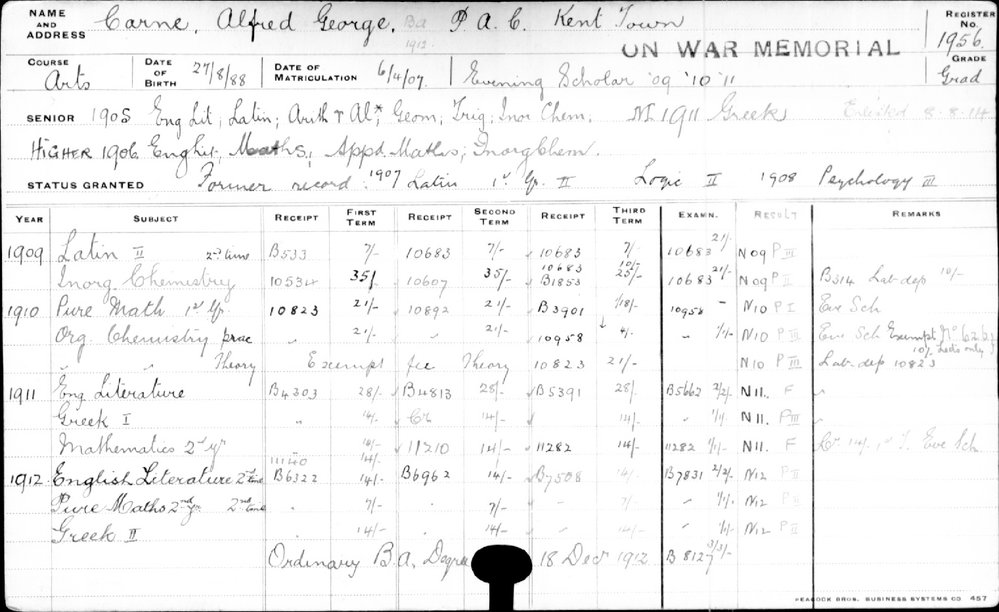 NAME AND ADDRESS Carne, Alfred George. Ba 1912 P. A. C. Kent Town REGISTER No. 1956
ON WAR MEMORIAL
COURSE Arts DATE OF BIRTH 27/8/88 DATE OF MATRICULATION 6/4/07. Evening Scholar '09 '10 '11 GRADE Grad
SENIOR 1905 Eng Lit; Latin; Arith & Al; Geom; Trig; Inor Chem. N 1911 Greek Enlisted 8-8-14
HIGHER 1906 Eng Lit, Maths; Appd Maths; Inorg Chem.
STATUS GRANTED Former record: 1907 Latin 1st Yr. II Logic II 1908 Psychology III
YEAR SUBJECT RECEIPT FIRST TERM RECEIPT SECOND TERM RECEIPT THIRD TERM EXAMN. RESULT REMARKS
1909 Latin II 2nd time B533 7/- 10683 7/- 10683 7/- 10683 21/- N09 P III
Inorg Chemistry 10534 35/- 10607 35/- 10683 10/- B1853 25/- 10683 21/- N09 P II B314 Lab dep 10/-
1910 Pure Math 1st Yr. 10823 21/- 10892 21/- B3901 /18/- 10958 - N10 P I Eve Sch
Org. Chemistry prac " 21/- " 21/- 10958 4/- " 1/- N10 P III Eve Sch Exempt No 62
" " Theory Exempt fee Theory 10823 21/- N10 P III Lab dep 10823 10/- Lects only
1911 Eng Literature B4303 28/- B4813 28/- B5391 28/- B5662 2/2/- N11. F "
Greek I " 14/- Cr 14/- " 14/- " 1/1/ N11. P III "
Mathematics 2nd yr 11140 14/- 14/- 11210 14/- 11282 14/- 11282 1/1/- N11. F Cr 14/- 1st T. Eve Sch.
1912 English Literature 2nd time B6322 14/- B6962 14/- B7508 14/- B7831 2/2/- N12 P II
Pure Maths 2nd yr 2nd time " 7/- " 7/- " 7/- " 1/1/- N12 P II
Greek II 14/- " 14/- " 14/- " 1/1/- N12 P II
Ordinary B.A. Degree 18 Decr 1912 B 8127 3/3/-
PEACOCK BROS. BUSINESS SYSTEMS CO 457